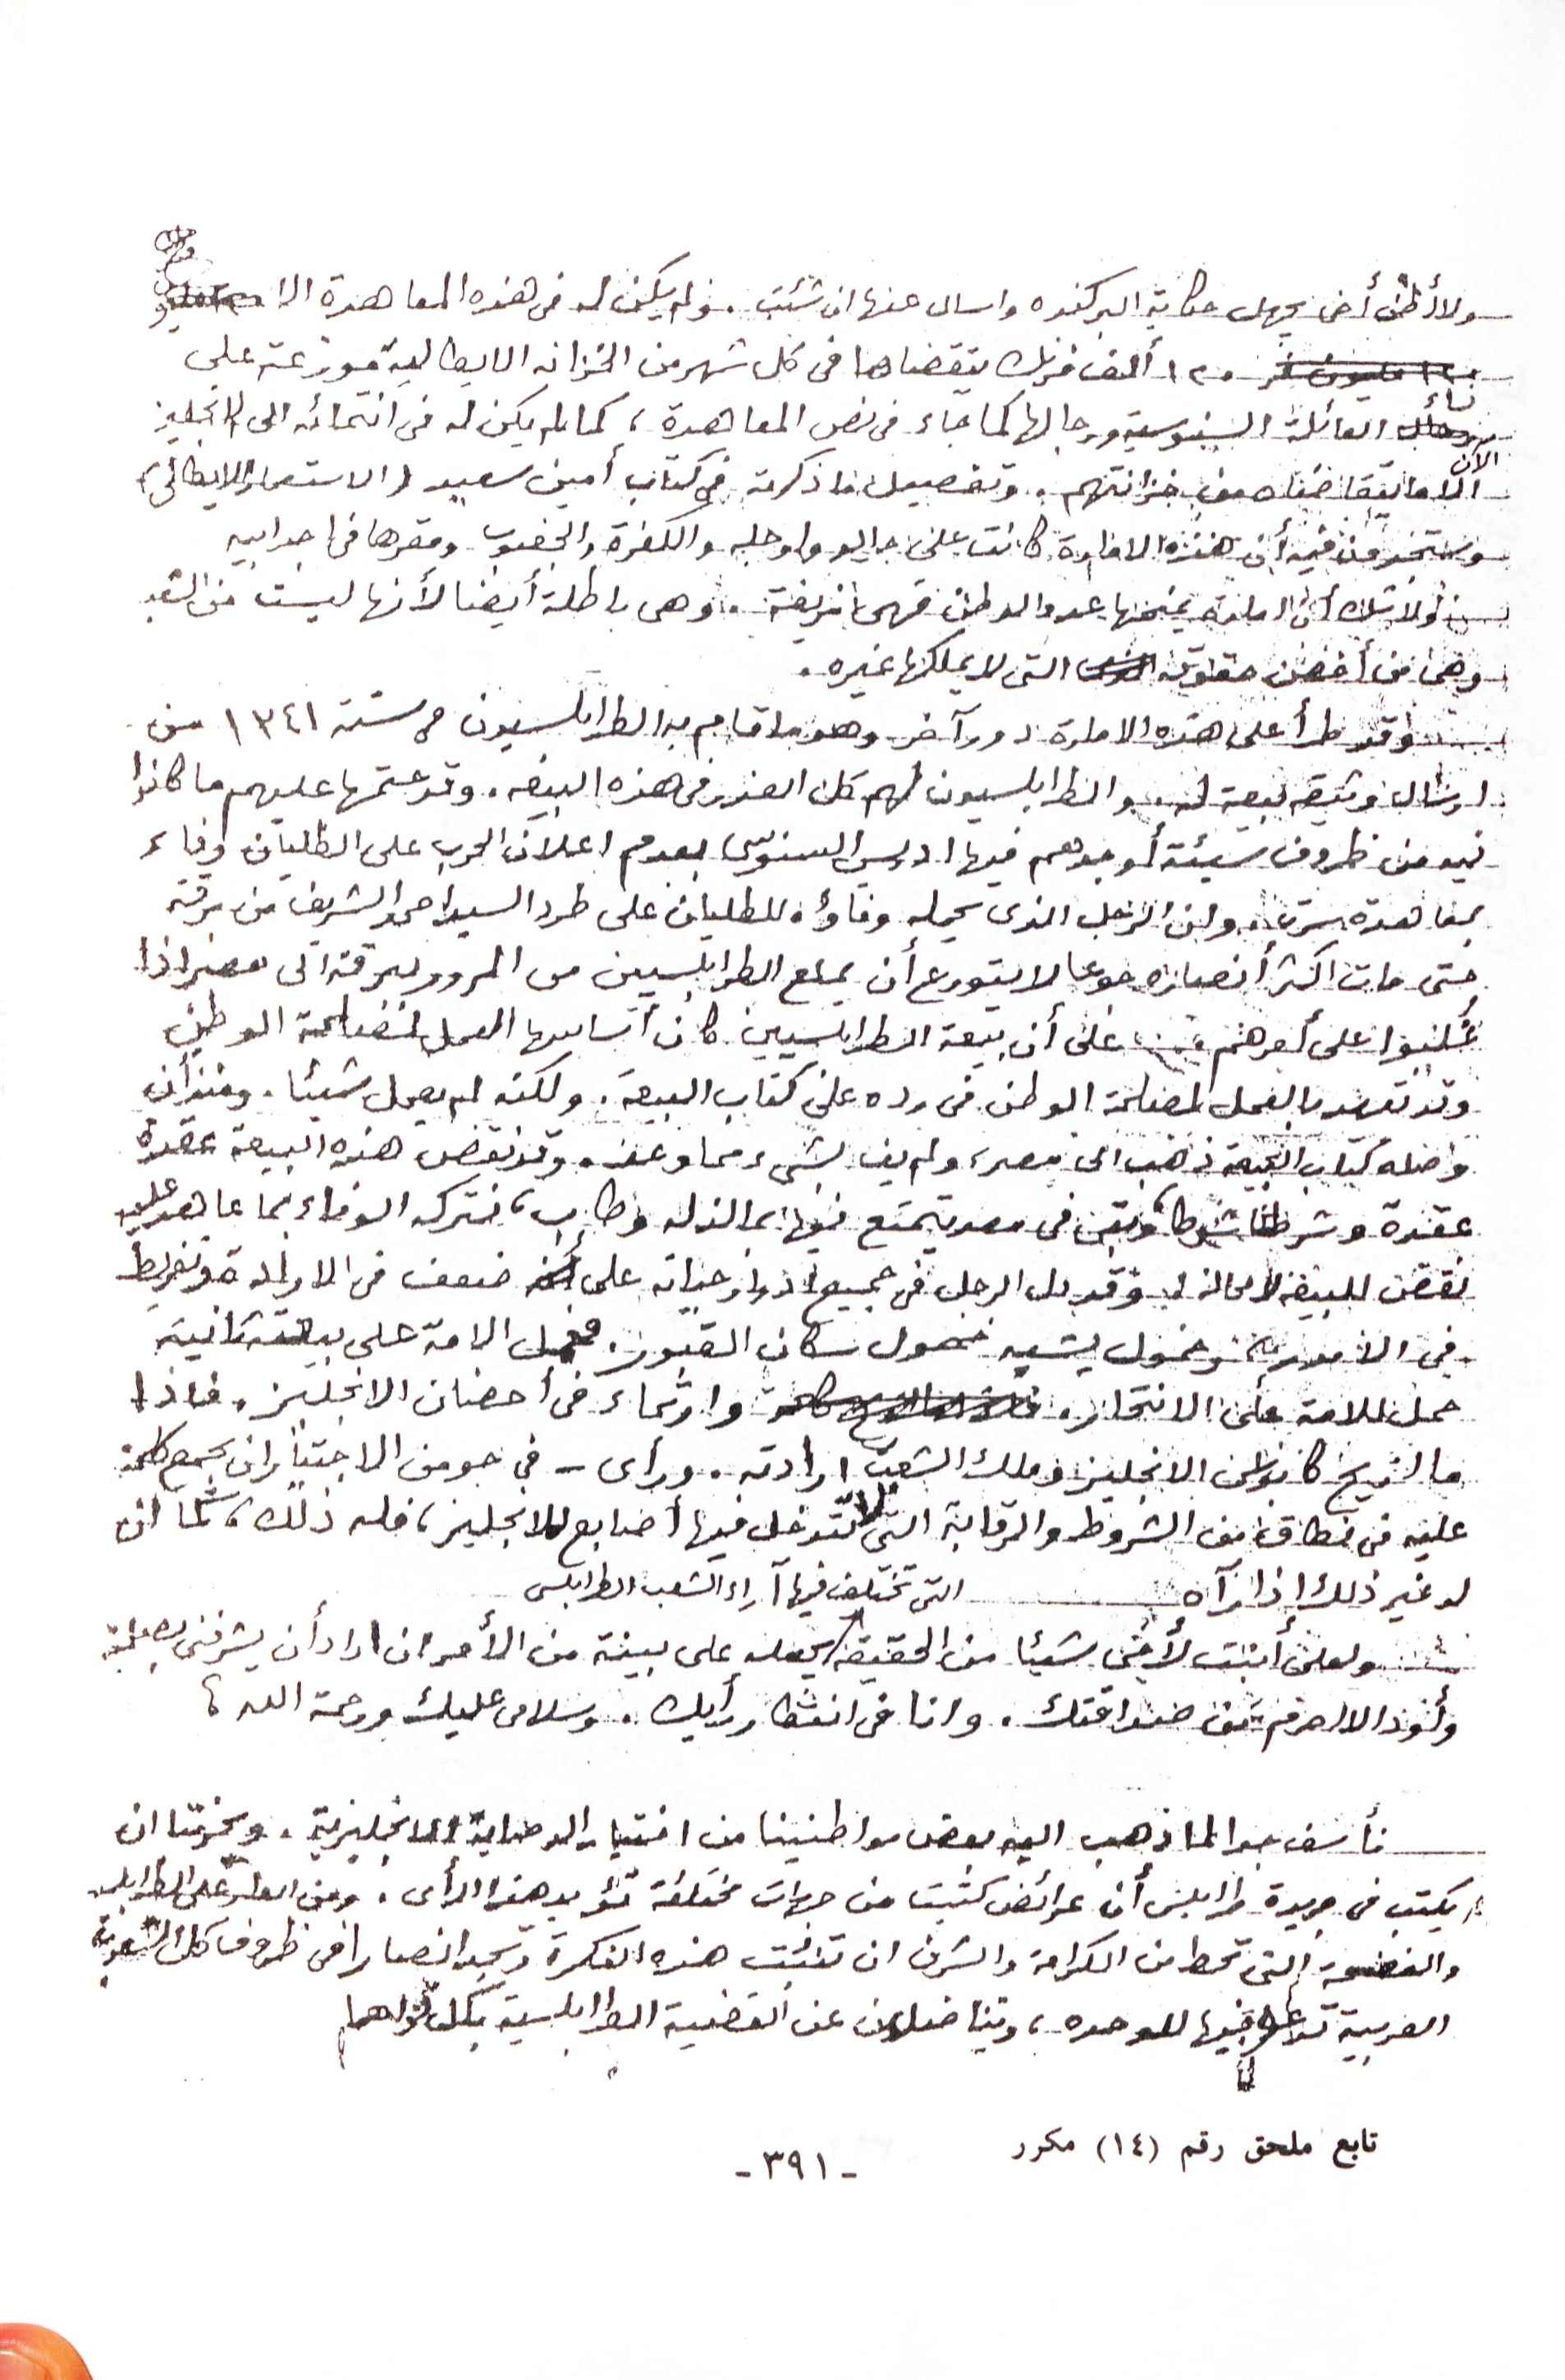 ولا أظن أخى يجهل حكاية البركنده واسال عنها ان شئت . ولم يكن له فى هذه المعاهدة الا
١٢٠ ألف فرنك يتقضاها فى كل شهر من الخزانه الايطالية موزعة على
نساء العائلة السنوسية ورجالها كما جاء فى نص المعاهدة ، كما لم يكن له فى انتمائه الى الانجليز
الآن الا ما يتقاضاه من خزانتهم . وتفصيل ما ذكرته فى كتاب أمين سعيد (الاستعمار الايطالى)
وستجدون فيه أن هذه الامارة كانت على جالو واوجله والكفرة والجغبوب ومقرها فى اجدابيه
ولا شك أن امارة يمنحها عدو الوطن فهى مزيفة . وهى باطلة أيضا لأنها ليست من الشعب
وهى من أخص حقوقه التى لا يملكها غيره .
وقد طرأ على هذه الامارة دور آخر وهو ما قام به الطرابلسيون فى سنة ١٣٤١ من
ارسال وثيقة بيعة له . والطرابلسيون لهم كل العذر فى هذه البيعه . وقد حتمها عليهم ما كانوا
فيه من ظروف سيئة أوجدهم فيها ادريس السنوسى بعدم اعلان الحرب على الطليان وفاء
بمعاهدة سرت . وان الرجل الذى يحمله وفاؤه للطليان على طرد السيد احمد الشريف من برقة
حتى مات اكثر أنصاره جوعا لا يتورع أن يمنع الطرابلسيين من المرور ببرقة الى مصر اذا
غُلبوا على أمرهم على أن بيعة الطرابلسيين كان أساسها العمل لمصلحة الوطن
وقد تعهد بالعمل لمصلحة الوطن فى رده على كتاب البيعة . ولكنه لم يعمل شيئا . ومنذ أن
وصله كتاب البيعة ذهب الى مصر ، ولم يف بشىء مما وعد . وقد نقض هذه البيعة عقدة
عقدة وشرطا شرطا ، وبقى فى مصر يتمتع فيها بما لذ له وطاب ، فتركه الوفاء بما عاهد عليه
نقض للبيعه لا محالة . وقد دل الرجل فى جميع ادوار حياته على ضعف فى الارادة وتفريط
فى الأمور وخمول يشبه خمول سكان القبور . فحمل الامة على بيعة ثانية
حمل للامة على الانتحار . وارتماء فى أحضان الانجليز . فاذا
ما انزيح كابوس الانجليز وملك الشعب ارادته . ورأى – فى جو من الاختيار ان يجمع كلمة
عليه فى نطاق من الشروط والرقابة التى لا تتدخل فيها أصابع للانجليز ، فله ذلك ، كما ان
له غير ذلك اذا رآه
ولعلى أبنت لأخى شيئا من الحقيقة التى تختلف فيها آراء الشعب الطرابلسى يجعله على بينة من الأمر ان اراد أن يشرفنى بصحبة
وأنه الا احرم من صداقتك . وانا فى انتظار رأيك . وسلامى عليك ورحمة الله
نأسف جدا لما ذهب اليه بعض مواطنينا من اختيار الوصاية الانجليزية . ويحزننا ان
يكتب فى جريدة طرابلس أن عرائض كتبت من جهات مختلفة تؤيد هذا الرأى . ومن العار على الطرابلسى
والفضيحة التى تحط من الكرامة والشرف ان تنبت هذه الفكرة وتجد انصارا فى ظروف كل الشعوب
العربية تدعو فيها للوحده ، ويناضلون عن القضية الطرابلسية بكل قواهم
تابع ملحق رقم (١٤) مكرر
- ٣٩١ -